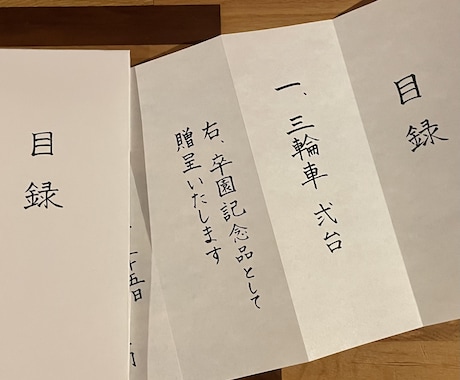 目録
一、三輪車 弐台
右、卒園記念品として
贈呈いたします
目録
五日